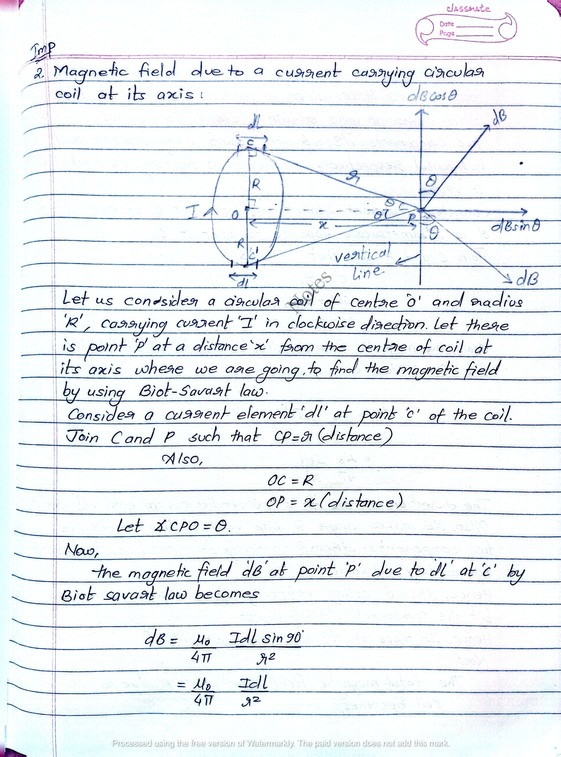 classmate
Date
Page
Imp
2. Magnetic field due to a current carrying circular
coil at its axis :
dBcosθ
dl
dB
C
r
R
θ
θ
I
O
θ
P
x
dBsinθ
R
θ
C'
vertical
line
dl
dB
Notes
Let us condsider a circular coil of centre 'O' and radius
'R', carrying current 'I' in clockwise direction. Let there
is point 'P' at a distance 'x' from the centre of coil at
its axis where we are going to find the magnetic field
by using Biot-Savart law.
Consider a current element 'dl' at point 'c' of the coil.
Join C and P such that CP=r (distance)
Also,
OC = R
OP = x (distance)
Let ∡CPO = θ.
Now,
the magnetic field 'dB' at point 'P' due to 'dl' at 'c' by
Biot savart law becomes
dB = μ₀/4π Idl sin 90°/r²
= μ₀/4π Idl/r²
Processed using the free version of Watermarkly. The paid version does not add this mark.